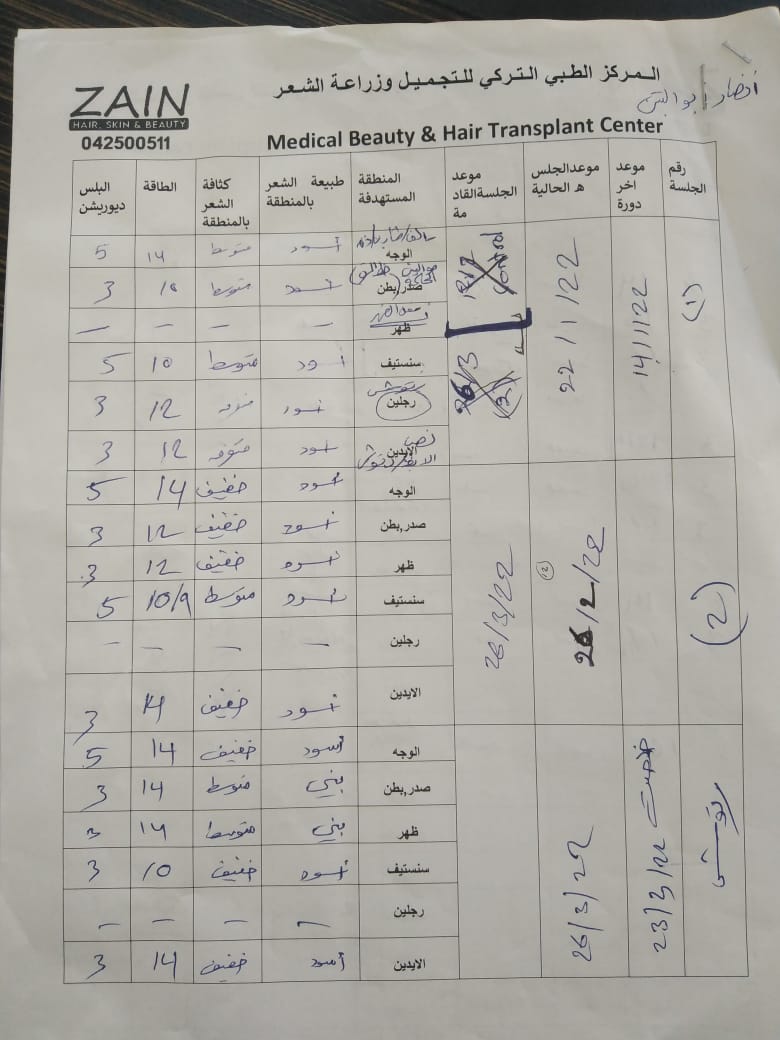 ZAIN
HAIR, SKIN & BEAUTY
042500511
المركز الطبي التركي للتجميل وزراعة الشعر
Medical Beauty & Hair Transplant Center
رقم الجلسة
موعد اخر دورة
موعدالجلسه الحالية
موعد الجلسةالقادمة
المنطقة المستهدفة
طبيعة الشعر بالمنطقة
كثافة الشعر بالمنطقة
الطاقة
البلس ديوريشن
(1)
14/1/22
22/1/22
26/3
الوجه أسود متوسط 14 5
صدر,بطن أسود متوسط 10 3
ظهر – – – –
سنستيف أسود متوسط 10 5
رجلين أسود 12 3
نص الايدين أسود 12 3
(2)
26/2/22
(2)
26/3/22
الوجه أسود خفيف 14 5
صدر,بطن أسود خفيف 12 3
ظهر أسود خفيف 12 3
سنستيف أسود متوسط 10/9 5
رجلين – – – –
الايدين أسود خفيف 14 3
رتوش
23/3/22
26/3/22
الوجه أسود خفيف 14 5
صدر,بطن بني متوسط 14 3
ظهر بني متوسط 14 3
سنستيف أسود خفيف 10 3
رجلين – – – –
الايدين أسود خفيف 14 3